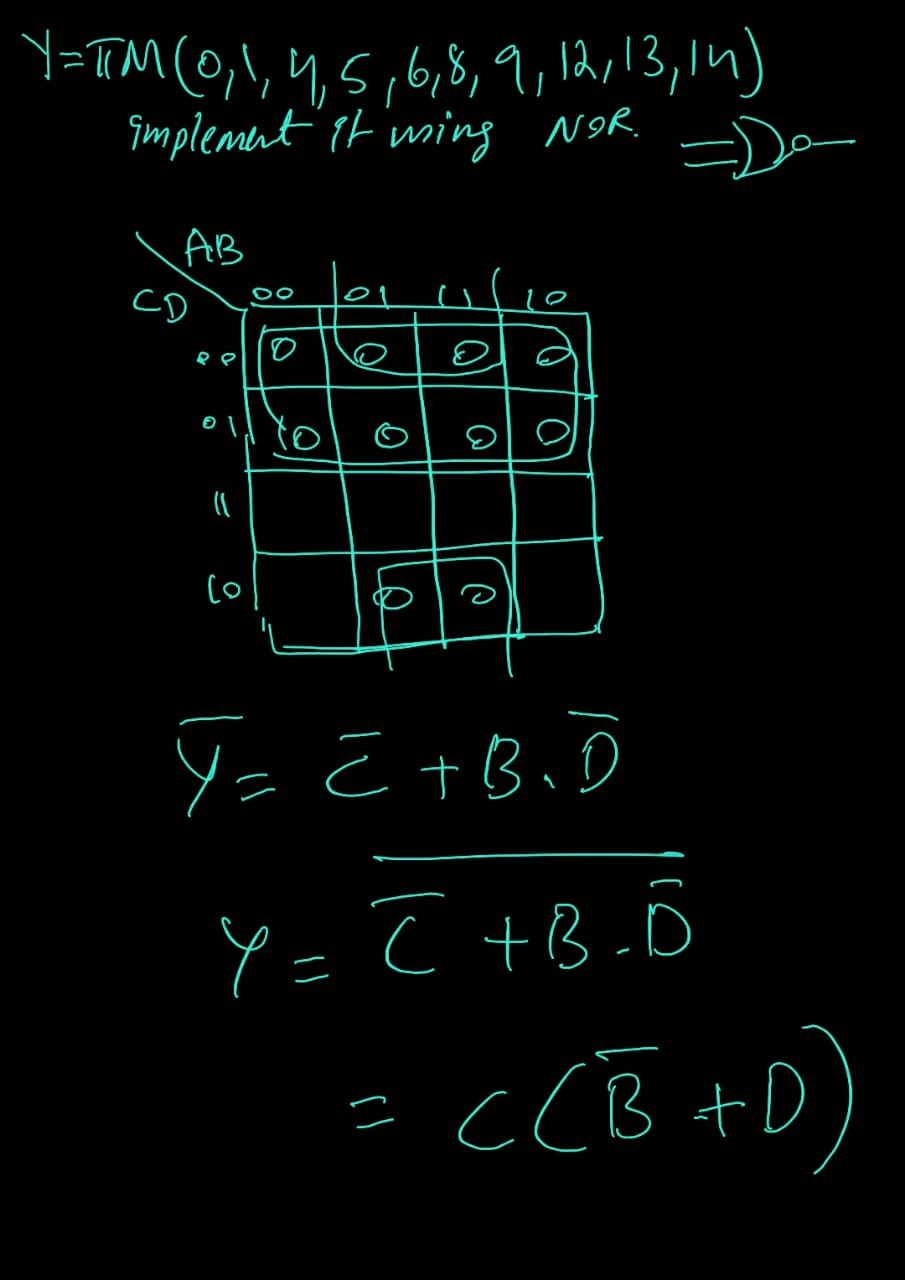 Y=πM(0,1,4,5,6,8,9,12,13,14)
implement it using NOR.
AB
CD
00 01 11 10
00 0 0 0 0
01 0 0 0 0
11
10 0 0
Y̅ = C̅ + B.D̅
Y = \overline{C̅ + B.D̅}
= C(B̅ + D)